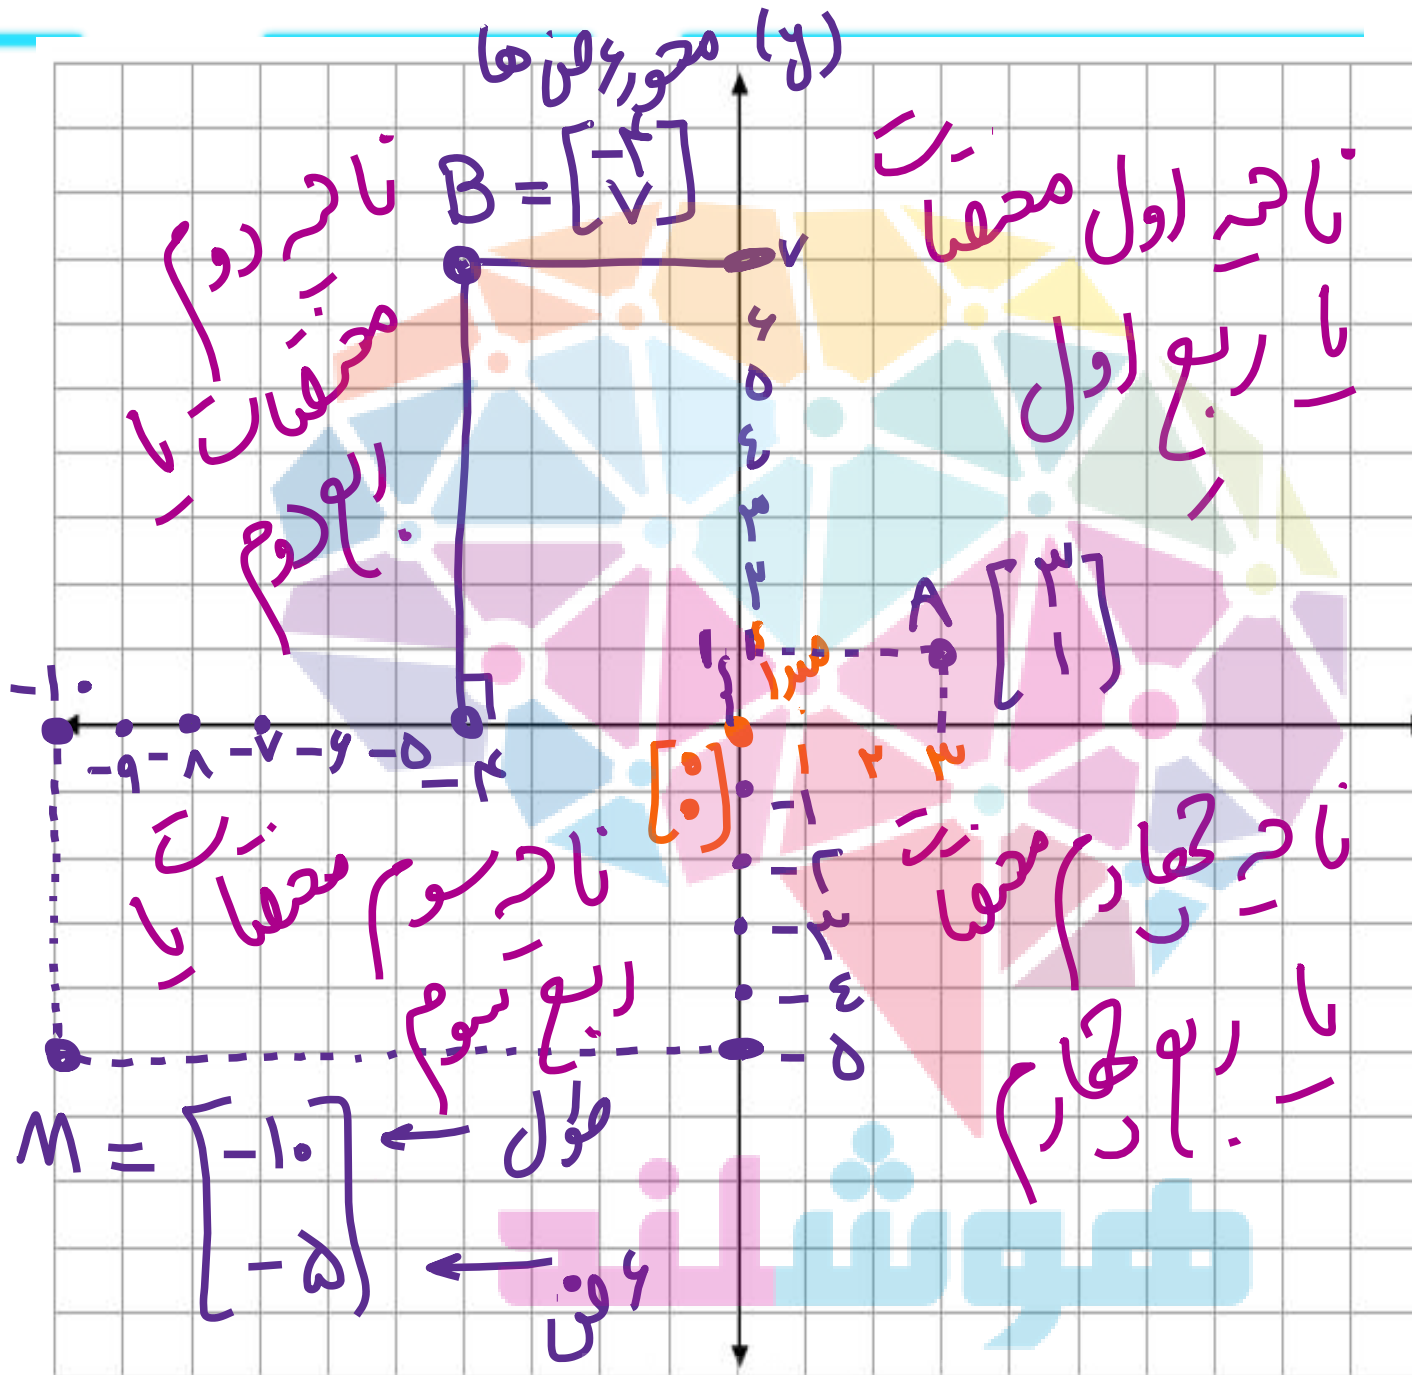 محور عرض ها (y)
B = [-۴ ۷]
ناحیه اول مختصات
یا ربع اول
ناحیه دوم
مختصات یا
ربع دوم
۷
۶
۵
۴
۳
۲
۱
A [۳ ۱]
مبدأ
[۰ ۰]
-۱۰ -۹ -۸ -۷ -۶ -۵ -۴
۱ ۲ ۳
-۱
-۲
-۳
-۴
-۵
ناحیه سوم مختصات یا
ربع سوم
ناحیه چهارم مختصات
یا ربع چهارم
M = [-۱۰ -۵]
طول
عرض
هوشلند